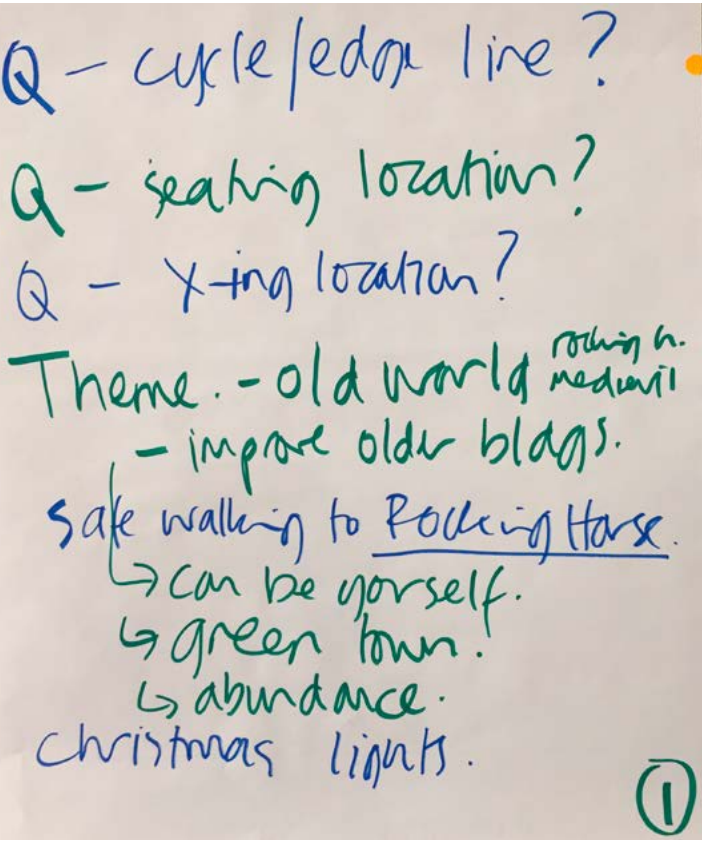 Q - cycle/edge line?
Q - seating location?
Q - X-ing location?
Theme. - old world rocking h. medievil
- improve older bldgs.
Safe walking to Rocking Horse.
↳ can be yorself.
↳ green town.
↳ abundance.
Christmas lights.
1